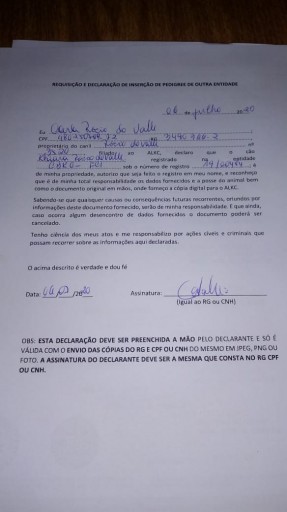 REQUISIÇÃO E DECLARAÇÃO DE INSERÇÃO DE PEDIGREE DE OUTRA ENTIDADE
de julho de 20
Eu do Valle
CPF RG
proprietário do canil nº
filiado ao ALKC, declaro que o cão
registrado na entidade
sob o número de registro é
de minha propriedade, autorizo que seja feito o registro em meu nome, e reconheço
que é de minha total responsabilidade os dados fornecidos e a posse do animal bem
como o documento original em mãos, onde forneço a cópia digital para o ALKC.
Sabendo-se que quaisquer causas ou consequências futuras recorrentes, oriundos por
informações deste documento fornecido, serão de minha responsabilidade. E que ainda,
caso ocorra algum desencontro de dados fornecidos o documento poderá ser
cancelado.
Tenho ciência dos meus atos e me responsabilizo por ações cíveis e criminais que
possam recorrer sobre as informações aqui declaradas.
O acima descrito é verdade e dou fé
Data: /2020 Assinatura:
(Igual ao RG ou CNH)
OBS: ESTA DECLARAÇÃO DEVE SER PREENCHIDA A MÃO PELO DECLARANTE E SÓ É
VÁLIDA COM O ENVIO DAS CÓPIAS DO RG E CPF OU CNH DO MESMO EM JPEG, PNG OU
FOTO. A ASSINATURA DO DECLARANTE DEVE SER A MESMA QUE CONSTA NO RG CPF
OU CNH.